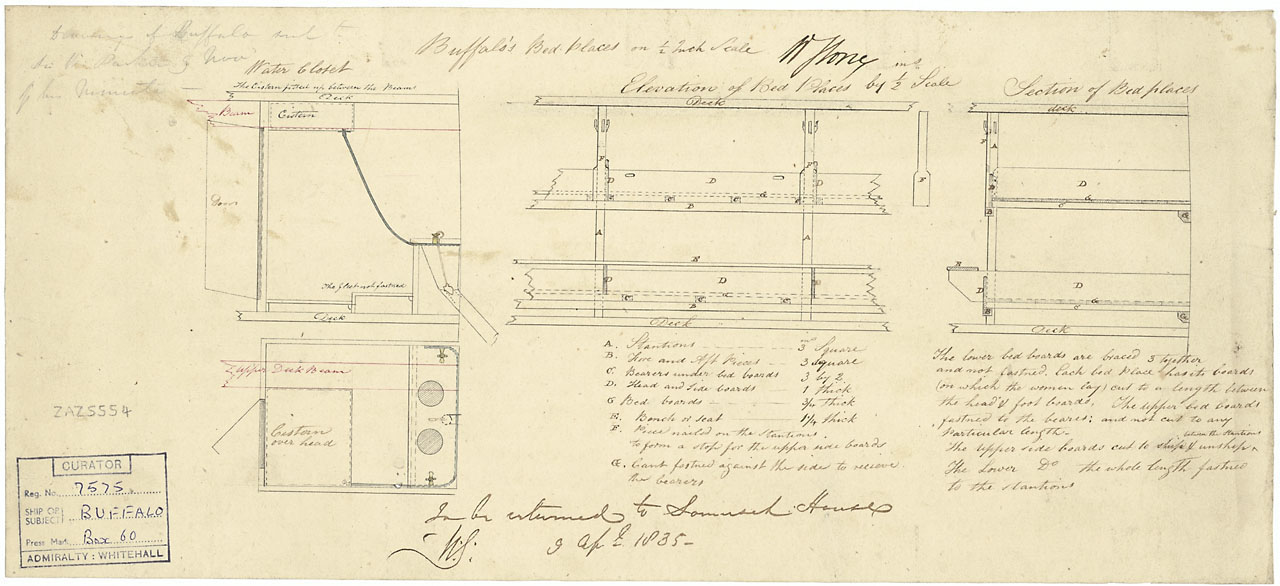 Buffalo sent
Buffalo's Bed Places on ½ Inch Scale
Water Closet
The Cistern fitted up between the Beams
Deck
Beam
Cistern
Door
The fastned
Deck
Upper Deck Beam
Cistern
over head
ZAZ5554
CURATOR
Reg. No. 7575
SHIP OR SUBJECT BUFFALO
Press Mark Box 60
ADMIRALTY: WHITEHALL
Elevation of Bed Places by ½ ins Scale
Deck
F
F
F
D
D
D
G
C
C
C
B
A
A
R
D
D
D
C
C
C
B
Deck
A. Stantions 3 Square
B. Fore and Aft Pieces 3 Square
C. Bearers under bed boards 3 by 2
D. Head and Side boards 1 thick
G Bed boards ¾ thick
R. Bench or seat 1¼ thick
F. Pieces nailed on the stantions
to form a stop for the upper side boards
Œ. Cant fastned against the side to recieve
the bearers
Section of Bed places
deck
F
A
D
D
G
C
B
Œ
R
D
D
G
C
B
Deck
The lower bed boards are braced 3 together
and not fastned. Each bed Place has its boards
(on which the women lay) cut to a length between
the head & foot boards. The upper bed boards
fastned to the bearers; and not cut to any
Particular length.
The upper side boards cut to ship & unship between the Stantions
The Lower Do the whole length fastned
to the Stantions
To be returned to Somerset House
W.S. 9 Apl 1835